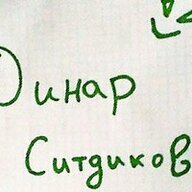 Динар
Ситдиков